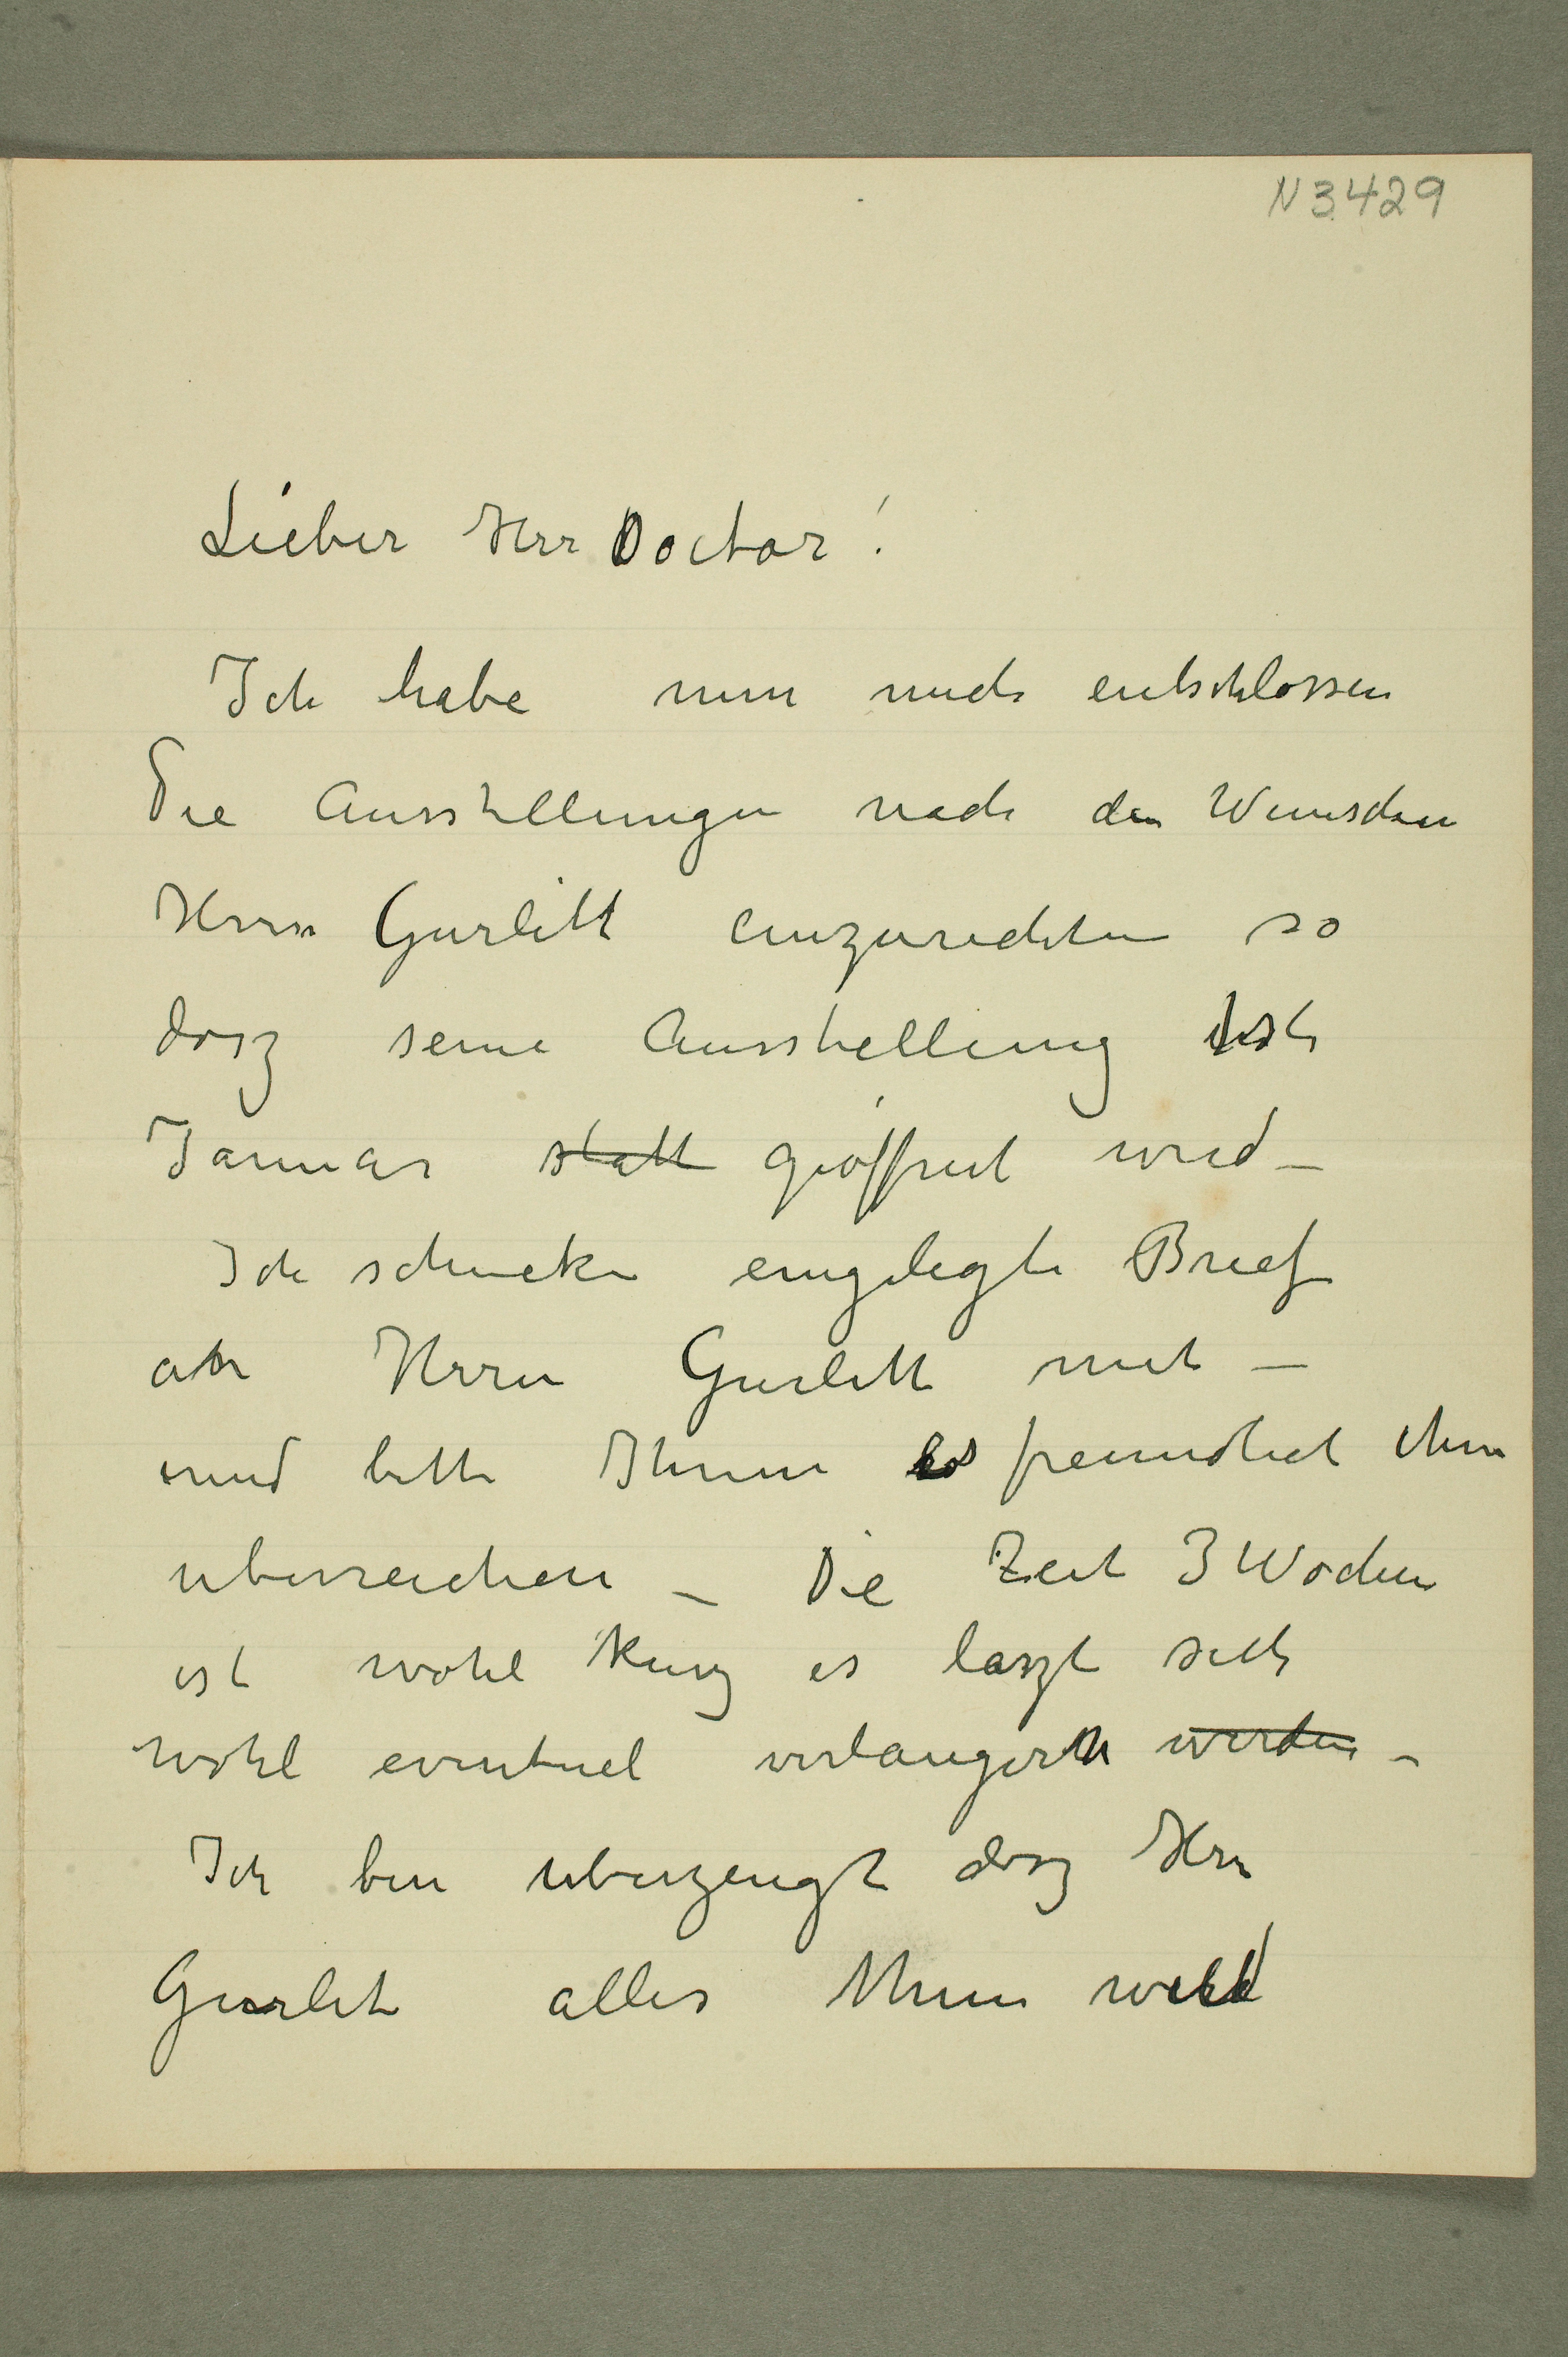 N 3429
Lieber Herr Doctor!
Ich habe nun mich entschlossen
Die Ausstellungen nach den Wunschen
Herrn Gurlitt einzurichten so
dasz seine Ausstellung
Januar statt geöffnet wird –
Ich schicke eingelegte Brief
an Herrn Gurlitt mit –
und bitte Ihnen es freundlich ihm
uberreichen – Die Zeit 3 Wochen
ist wohl kurz es laszt sich
wohl eventuel verlangern werden –
Ich bin uberzeugt dasz Herr
Gurlit alles thun wird